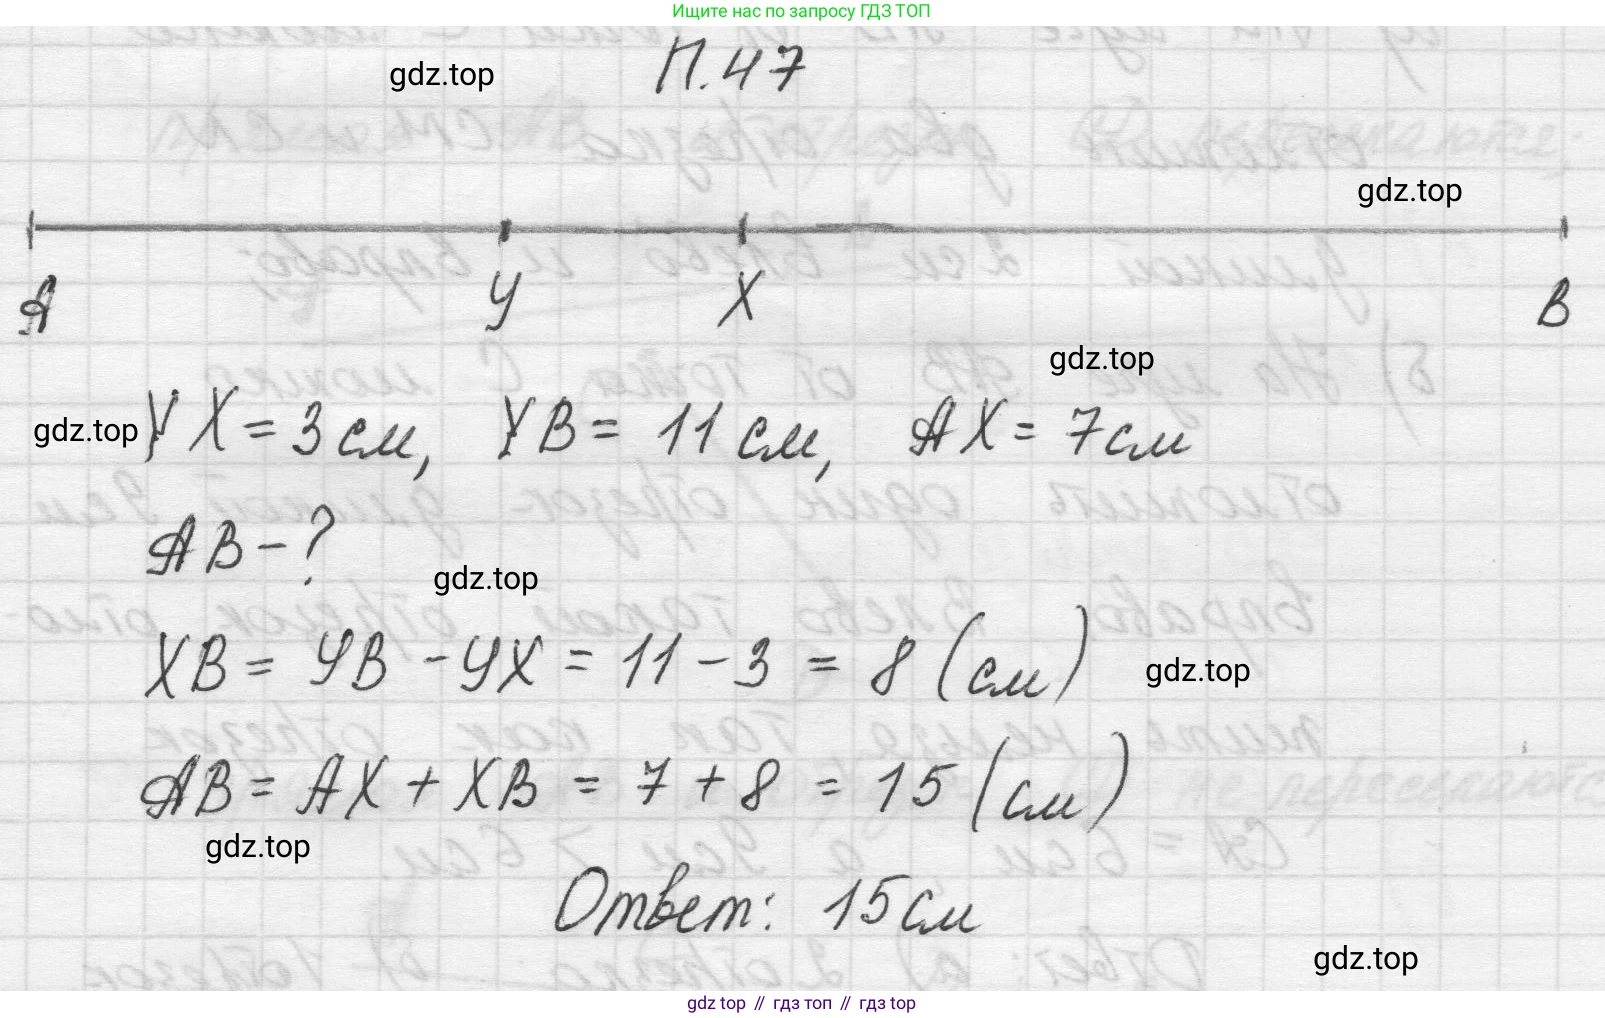 Ищите нас по запросу ГДЗ ТОП
П.47
gdz.top
gdz.top
А У Х В
gdz.top
gdz.top
YX = 3 см, YB = 11 см, AX = 7 см
AB - ?
gdz.top
XB = УB - УX = 11 - 3 = 8 (см)
gdz.top
AB = AX + XB = 7 + 8 = 15 (см)
gdz.top
Ответ: 15 см
gdz.top
gdz top // гдз топ // гдз top